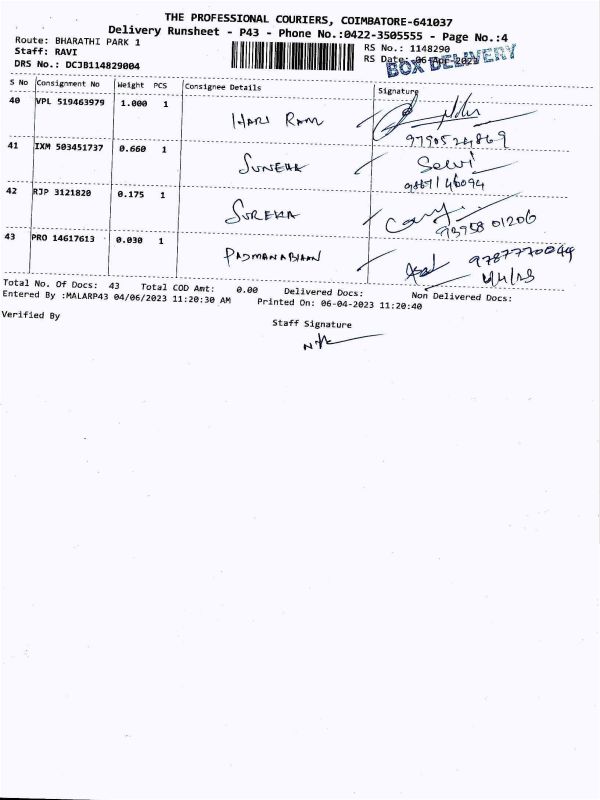 THE PROFESSIONAL COURIERS, COIMBATORE-641037
Delivery Runsheet - P43 - Phone No.:0422-3505555 - Page No.:4
Route: BHARATHI PARK 1
RS No.: 1148290
Staff: RAVI
RS Date: 06-Apr-2023
DRS No.: DCJB114829004
BOX DELIVERY
S No Consignment No Weight PCS Consignee Details Signature
40 VPL 519463979 1.000 1
HARI RAM
9790524869
41 IXM 503451737 0.660 1
SUNEHA
Selvi
9867146094
42 RJP 3121820 0.175 1
SUREKA
93958 01206
43 PRO 14617613 0.030 1
PADMANABHAN
9787770044
Total No. Of Docs: 43 Total COD Amt: 0.00 Delivered Docs: Non Delivered Docs:
Entered By :MALARP43 04/06/2023 11:20:30 AM Printed On: 06-04-2023 11:20:40
Verified By
Staff Signature